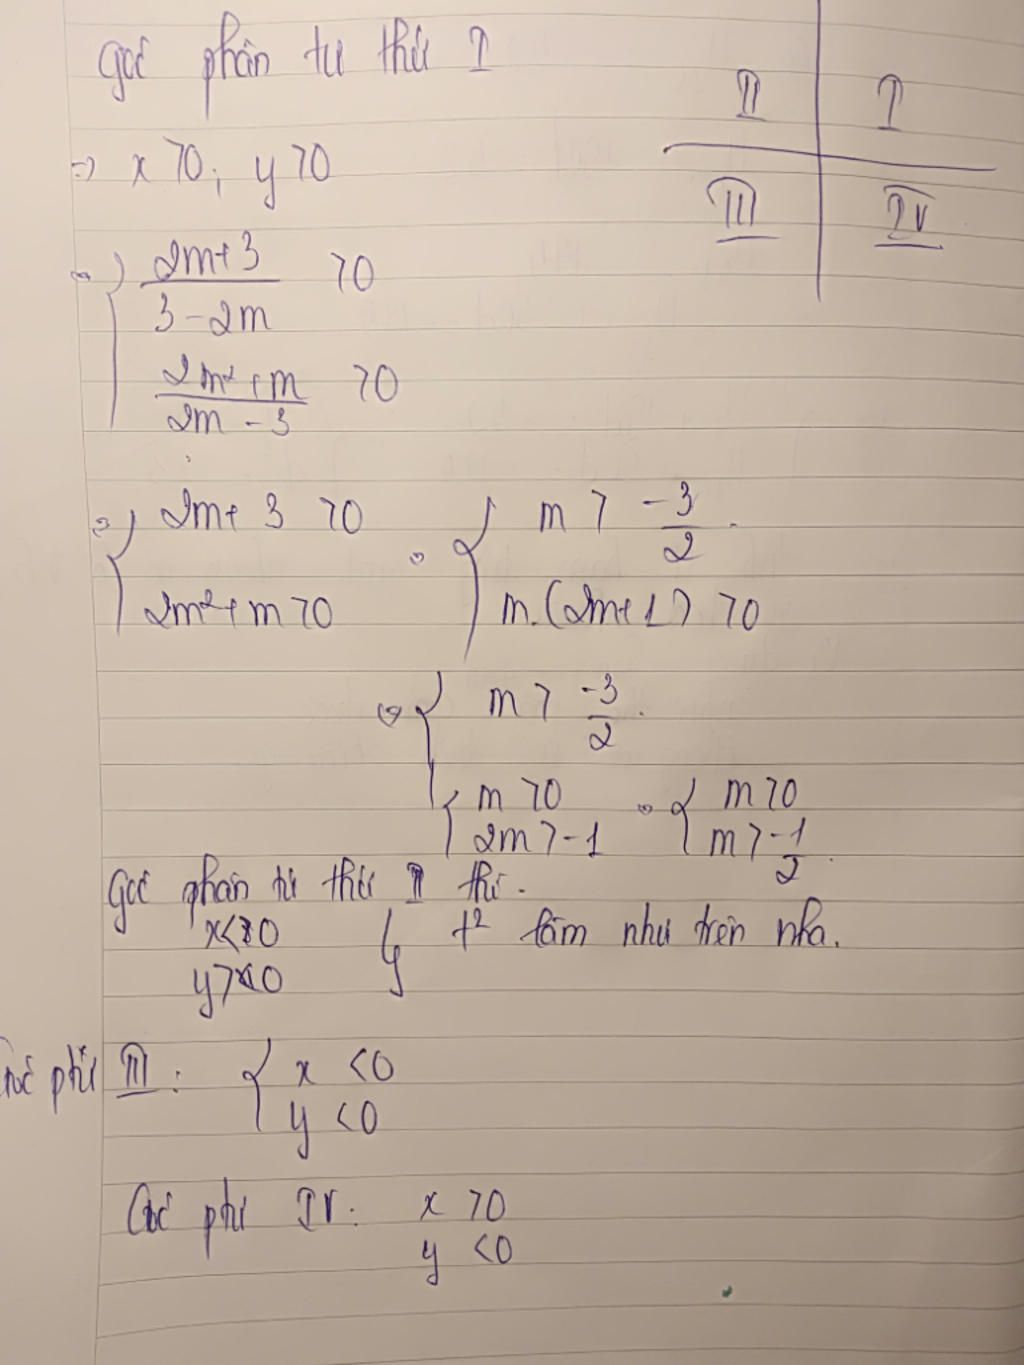 Góc phần tư thứ I
II I
III IV
=> x > 0; y > 0
2m+3 / 3-2m > 0
2m²+m / 2m-3 > 0
2m+3 > 0 m > -3/2
2m²+m > 0 m.(2m+1) > 0
m > -3/2
m > 0 m > 0
2m > -1 m > -1/2
Góc phần tư thứ II thì
x < 0 t² làm như trên nha.
y > 0
III: x < 0
y < 0
Góc phtư IV: x > 0
y < 0